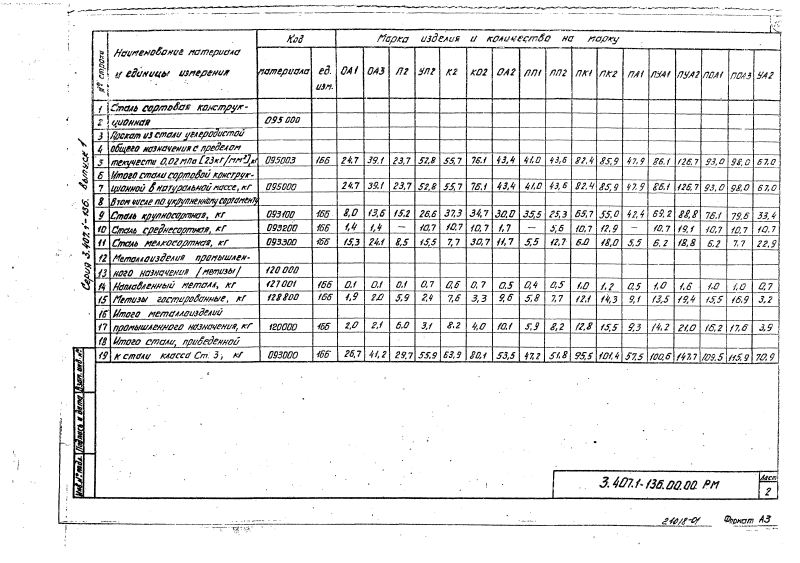 Код Марка изделия и количество на марку
№ строки Наименование материала и единицы измерения материала ед. изм. ОА1 ОА3 П2 УП2 К2 КО2 ОА2 ПП1 ПП2 ПК1 ПК2 ПА1 ПУА1 ПУА2 ПОА1 ПОА3 УА2
1 Сталь сортовая конструк-
2 ционная 095000
3 Прокат из стали углеродистой
4 общего назначения с пределом
5 текучести 0,02 мпа (23кг/мм²), кг 095003 166 24.7 39.1 23.7 52,8 55,7 76.1 43,4 41.0 43,6 82.4 85,9 47.9 86.1 126.7 93,0 98,0 67.0
6 Итого стали сортовой конструк-
7 ционной в натуральной массе, кг 095000 24.7 39.1 23.7 52,8 55,7 76.1 43,4 41.0 43,6 82.4 85,9 47.9 86.1 126.7 93,0 98.0 67.0
8 В том числе по укрупненному сортаменту
9 Сталь крупносортная, кг 093100 166 8,0 13,6 15.2 26.6 37,3 34,7 30,0 35,5 25,3 65,7 55,0 42,4 69,2 88,8 76.1 79,6 33,4
10 Сталь среднесортная, кг 093200 166 1,4 1,4 — 10.7 10,7 10,7 1,7 — 5,6 10,7 12,9 — 10,7 19,1 10,7 10,7 10,7
11 Сталь мелкосортная, кг 093300 166 15,3 24.1 8,5 15,5 7,7 30,7 11,7 5,5 12,7 6.0 18,0 5,5 6,2 18,8 6.2 7.7 22,9
12 Металлоизделия промышлен-
13 ного назначения /метизы/ 120000
14 Наплавленный металл, кг 127001 166 0.1 0.1 0.1 0,7 0,6 0,7 0,5 0,4 0,5 1.0 1,2 0,5 1.0 1,6 1.0 1,0 0,7
15 Метизы гостированные, кг 128800 166 1,9 2.0 5,9 2,4 7,6 3,3 9,6 5,8 7,7 12.1 14,3 9,1 13,5 19,4 15,5 16,9 3,2
16 Итого металлоизделий
17 промышленного назначения, кг 120000 166 2,0 2,1 6.0 3,1 8.2 4.0 10,1 5,9 8,2 12,8 15,5 9,3 14,2 21,0 16,2 17,6 3,9
18 Итого стали, приведенной
19 к стали класса Ст. 3, кг 093000 166 26,7 41,2 29,7 55,9 63,9 80,1 53,5 47,2 51,8 95,5 101,4 57,5 100,6 147,7 109,5 115,9 70,9
Серия 3.407.1-136. выпуск 1
Инв.№ подл. Подпись и дата Взам.инв.№
3.407.1-136.00.00 РМ
Лист
2
21018-01 Формат А3